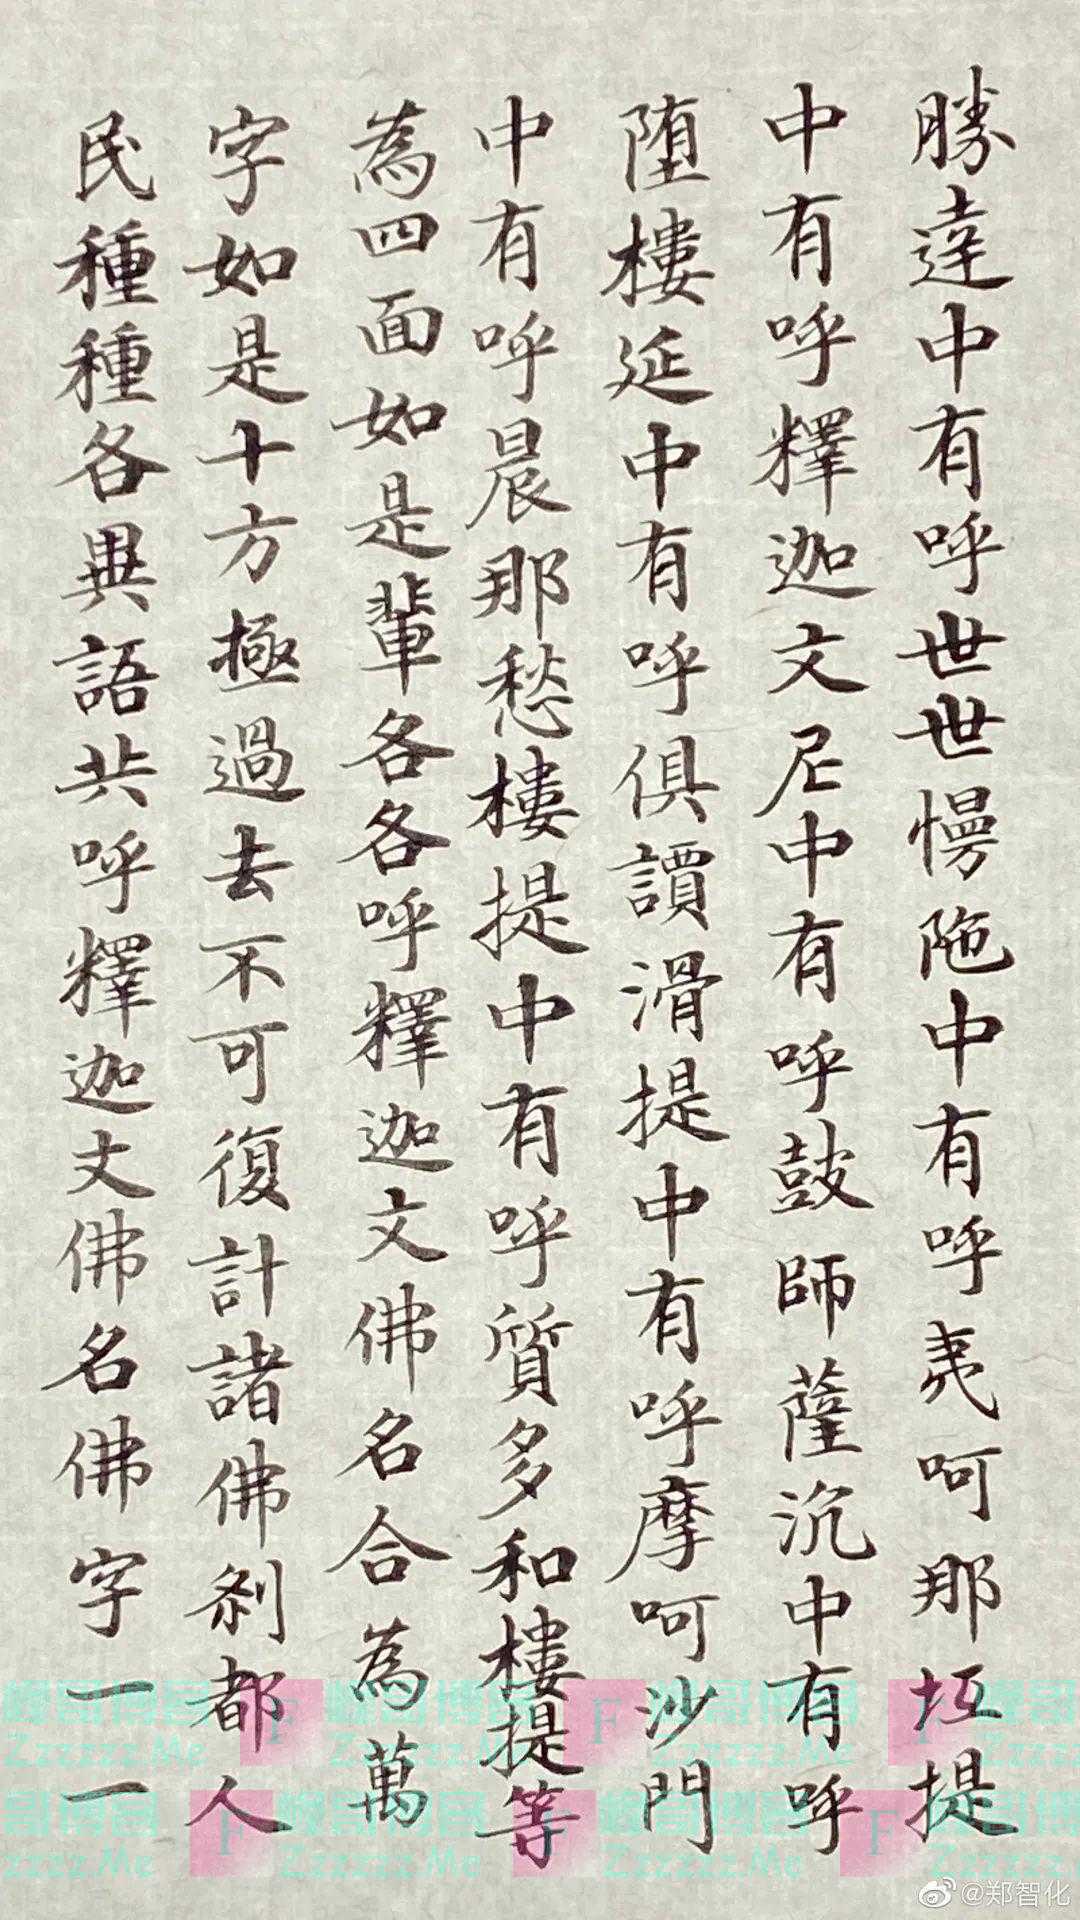 勝達中有呼世世慢陁中有呼夷呵那坘提
中有呼釋迦文尼中有呼鼓師薩沉中有呼
堕樓延中有呼俱讀滑提中有呼摩呵沙門
中有呼晨那愁樓提中有呼質多和樓提等
為四面如是輩各各呼釋迦文佛名合為萬
字如是十方極過去不可復計諸佛剎都人
民種種各異語共呼釋迦文佛名佛字一一
ZzzzzZ.Me
@郑智化